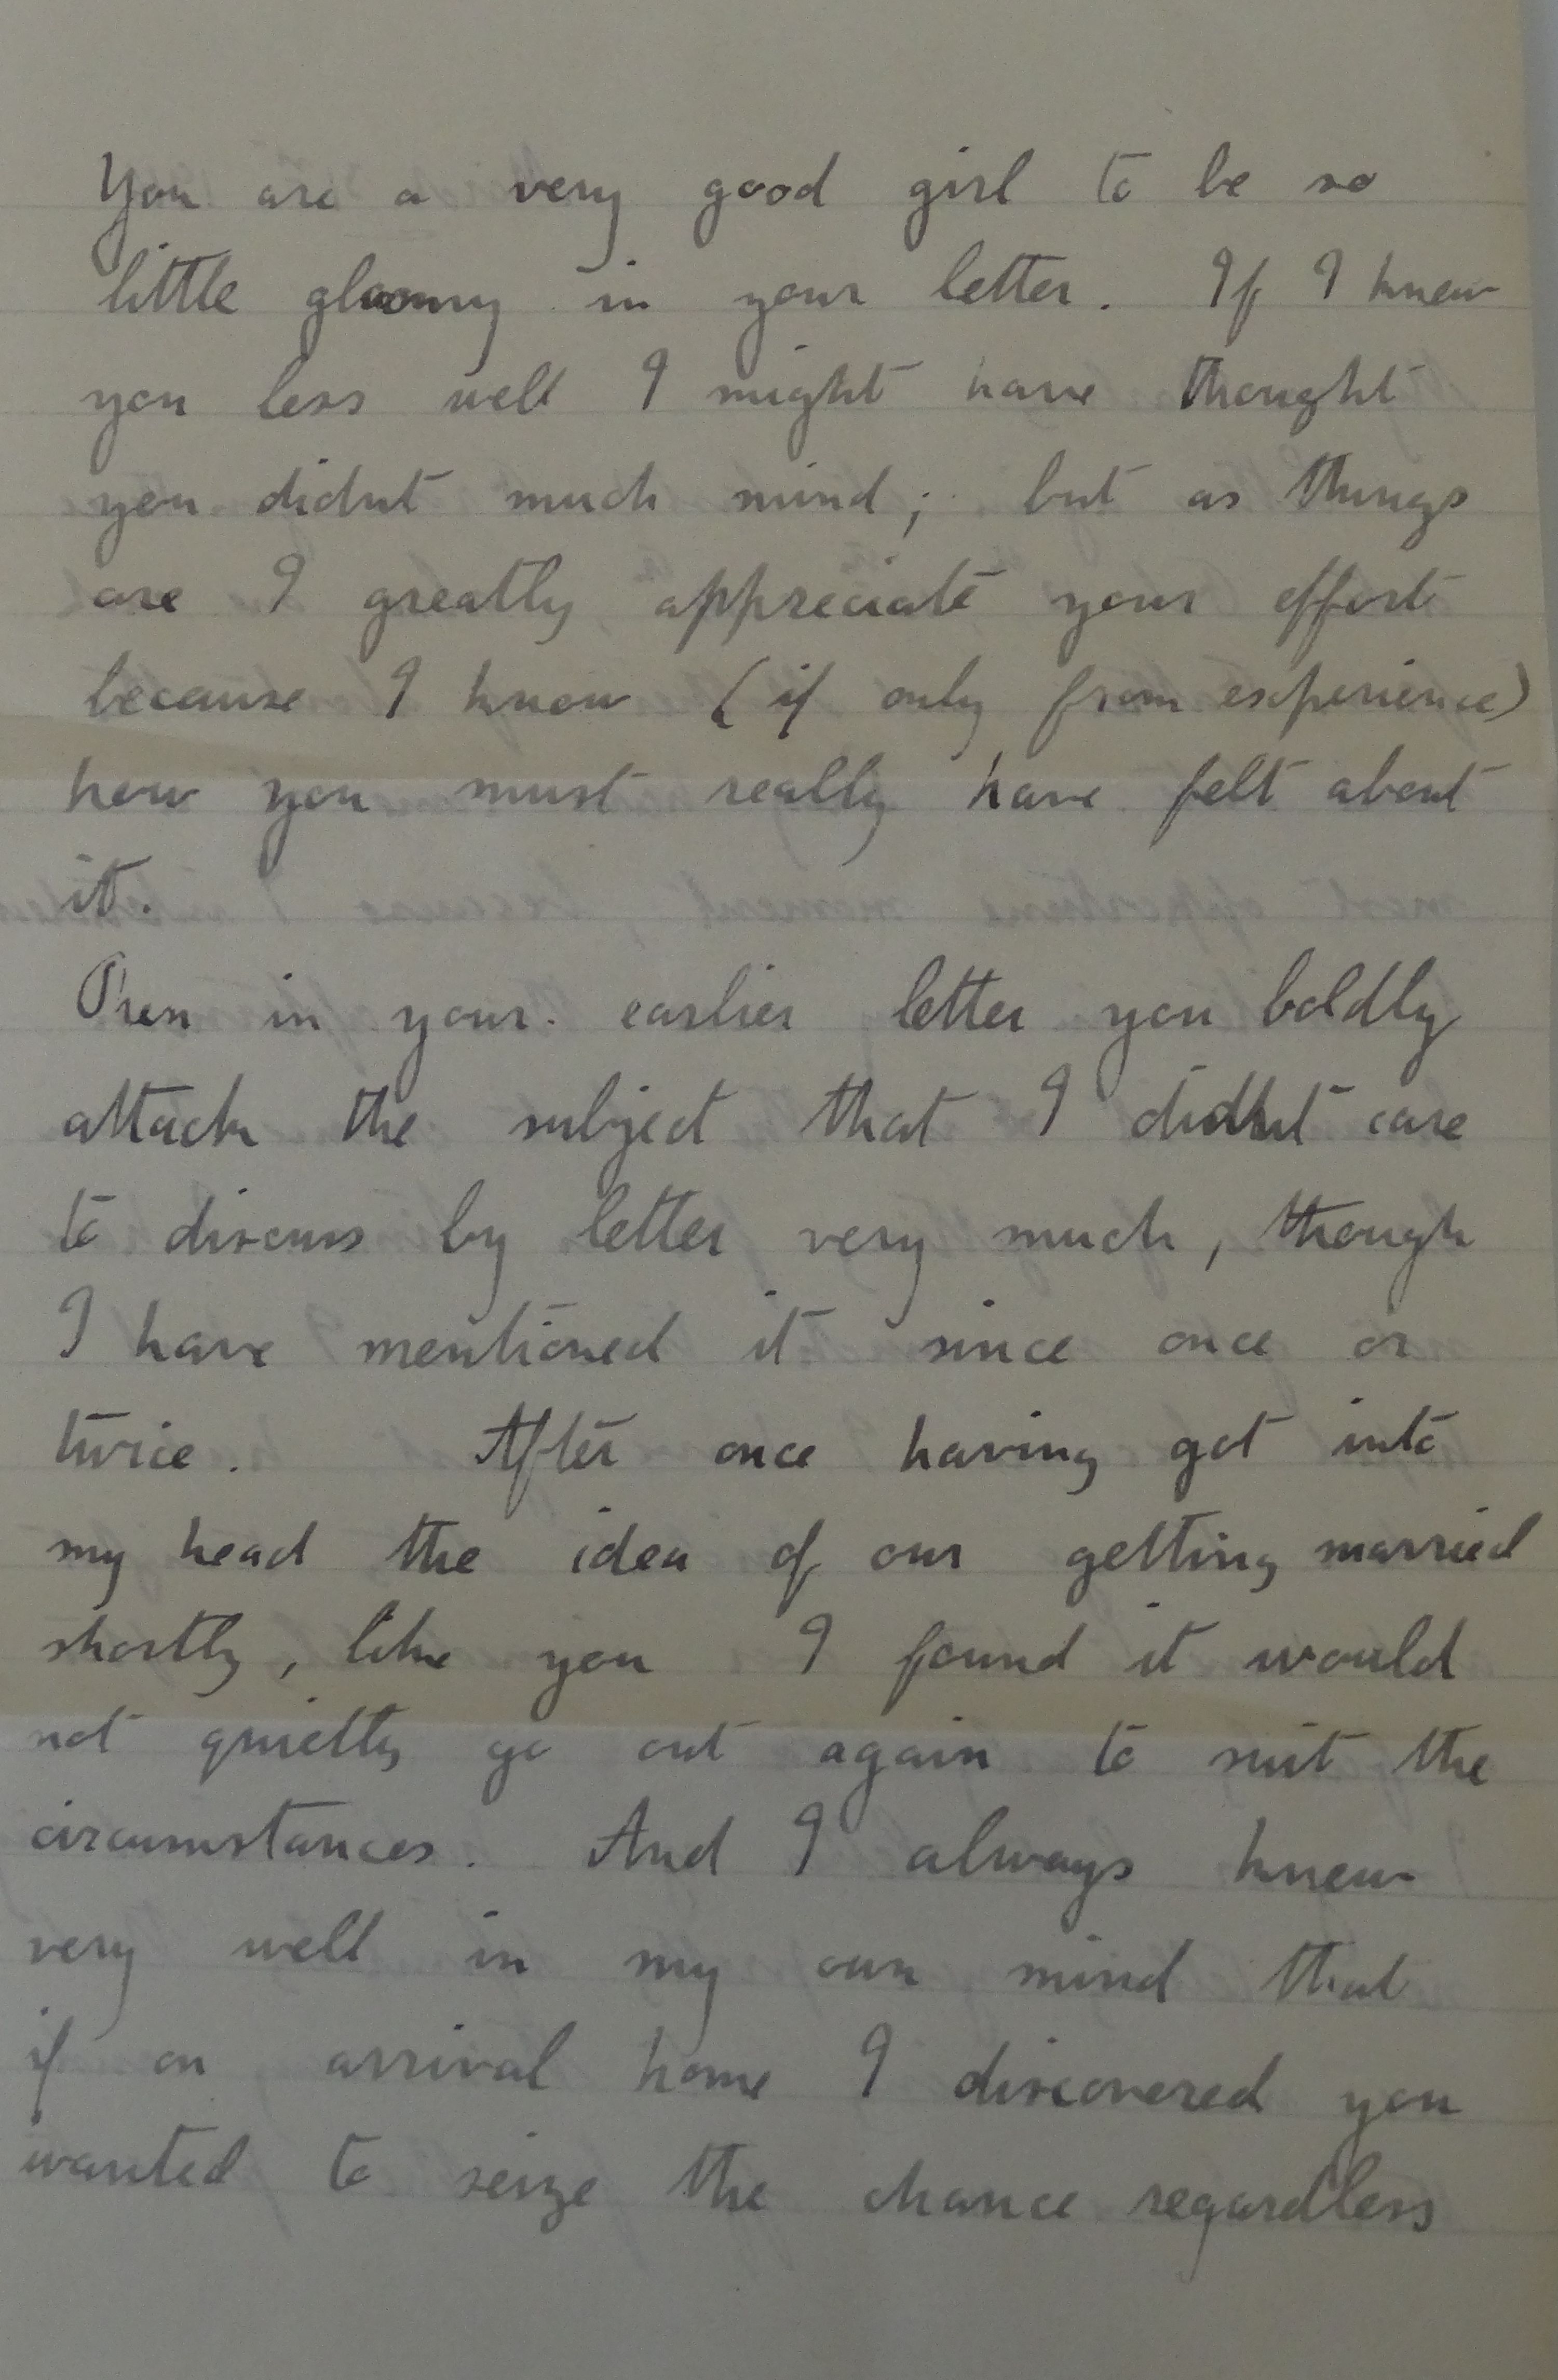 You are a very good girl to be so
little gloomy in your letter. If I knew
you less well I might have thought
you didnt much mind; but as things
are I greatly appreciate your effort
because I know (if only from experience)
how you must really have felt about
it.
Then in your earlier letter you boldly
attack the subject that I didnt care
to discuss by letter very much, though
I have mentioned it since once or
twice. After once having got into
my head the idea of our getting married
shortly, like you I found it would
not quietly go out again to suit the
circumstances. And I always knew
very well in my own mind that
if on arrival home I discovered you
wanted to seize the chance regardless